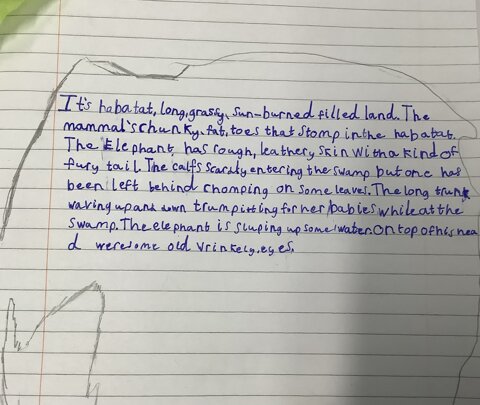 It's habatat, long, grassy, sun-burned filled land. The
mammal's chunky, fat, toes that stomp in the habatat.
The Elephant has rough, leathery skin with a kind of
fury tail. The calfs scarsly entering the swamp but one has
been left behind chomping on some leaves. The long trunk
waving up and down trumpitting for her babies while at the
swamp. The elephant is sluping up some water. On top of his hea
d were some old vrinkely, eyes.